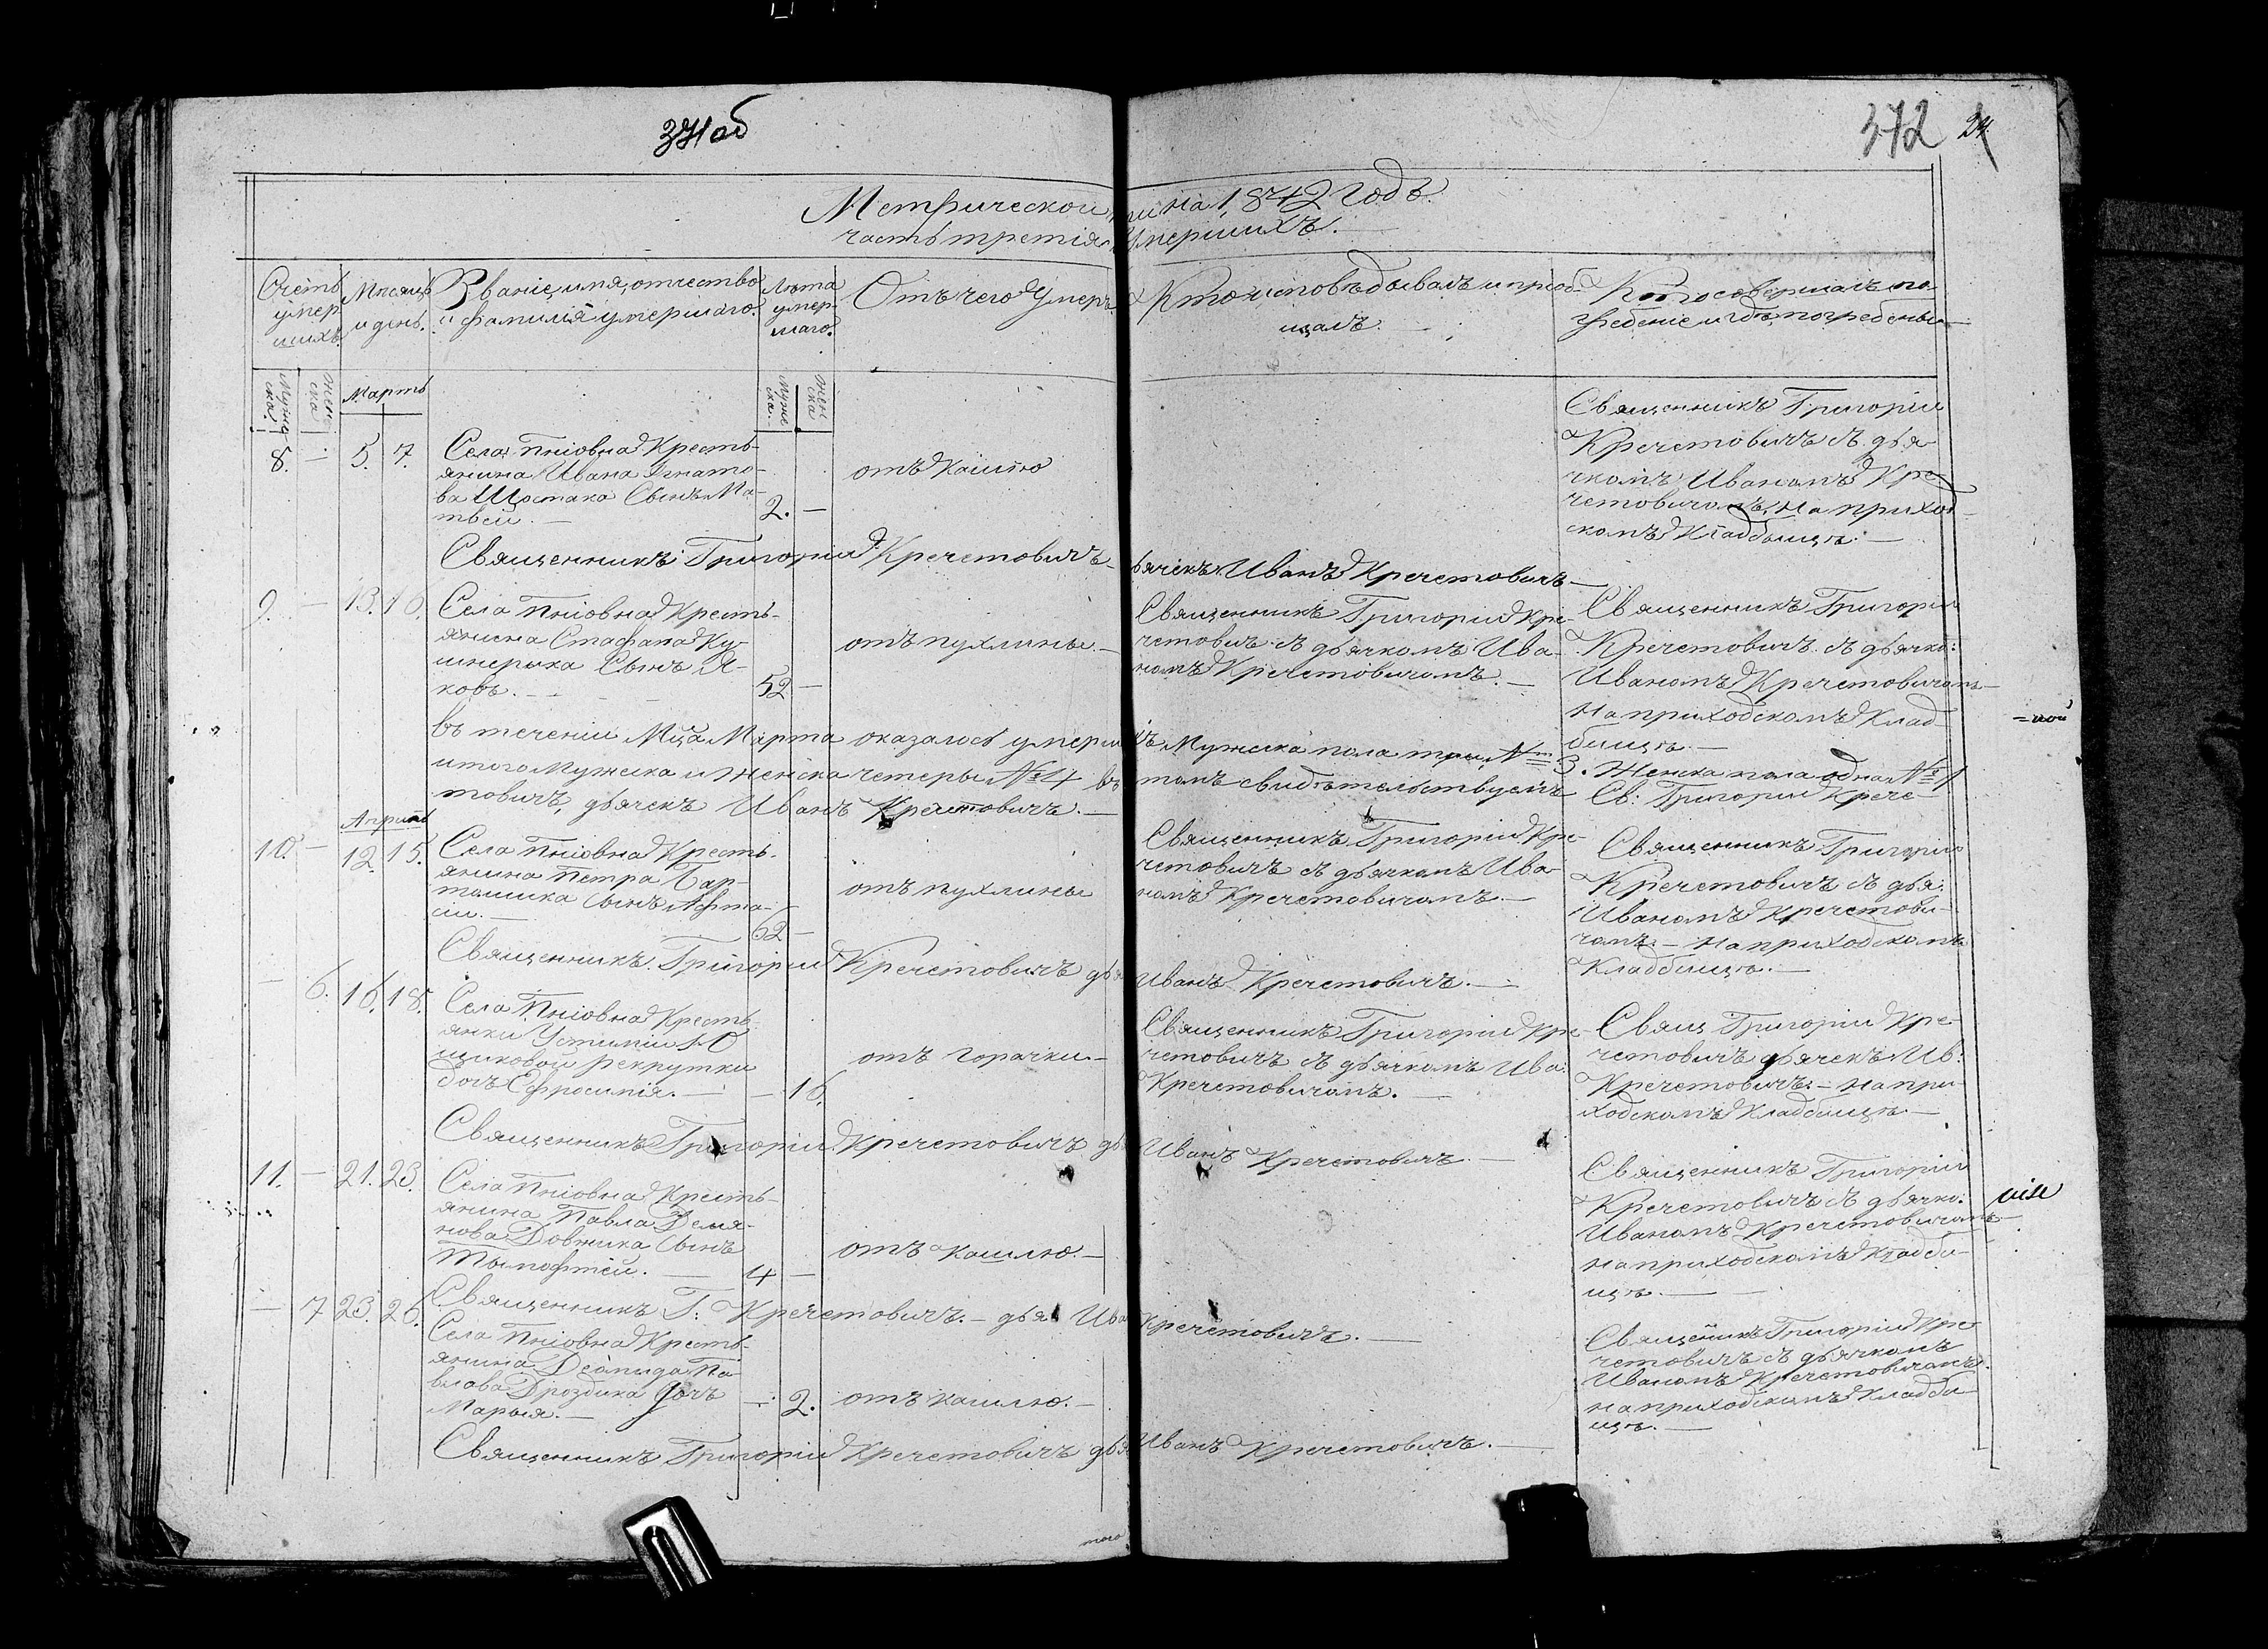 371об
372 24
Метрической на 1842 Годъ.
часть третія Умершихъ.
Счетъ умер шихъ.
Мужеска.
Женска
Мѣсяцъ и день.
Званіе, имя, отчество и фамилія умершаго.
Лѣта умершаго.
Мужеска.
Женска
Отъ чего Умеръ
Кто исповѣдывалъ и пріоб-
щалъ.
Кто совершалъ по-
гребеніе и гдѣ погребены
Мартъ
8. — 5. 7.
Села Пніовна Кресть-
янина Ивана Игнато-
ва Шостака Сынъ Ма-
твей. —
2. —
отъ Кашлю
Священникъ Григорій
Кречетовичъ съ дья-
чкомъ Иваномъ Кре-
четовичомъ, на приход-
скомъ Кладбищѣ. —
Священникъ Григорій Кречетовичъ ьячекъ Иванъ Кречетовичъ —
9. — 13. 16.
Села Пніовна Кресть-
янина Стефана Ку-
шнерыка Сынъ Я-
ковъ. —
52 —
отъ пухлины. —
Священникъ Григорій Кре-
четовичъ съ дьячкомъ Ива-
номъ Кречетовичомъ. —
Священникъ Григорій
Кречетовичъ съ дьячко:
Иваномъ Кречетовичомъ —
на приходскомъ Клад-
бищѣ. —
въ теченіи Мца Марта оказалось умерш хъ Мужеска пола три № 3. Женска пола одна № 1
итого Мужеска и Женска четеры № 4 въ томъ свидѣтельствуемъ Св: Григорій Крече-
товичъ, дьячекъ Иванъ Кречетовичъ. —
Апрель
10. — 12. 15.
Села Пніовна Кресть-
янина Петра Бар-
ташика Сынъ Афта-
сій. —
62 —
отъ пухлины
Священникъ Григорій Кре-
четовичъ съ дьячкомъ Ива-
номъ Кречетовичомъ. —
Священникъ Григорій
Кречетовичъ съ дья:
Иваномъ Кречетови-
чомъ. — на приходскомъ
Кладбищѣ. —
Священникъ Григорій Кречетовичъ дья Иванъ Кречетовичъ. —
— 6. 16. 18.
Села Пніовна Кресть-
янки Устиміи
рекрутки
дочъ Ефросинія. —
— 16.
отъ Горачки —
Священникъ Григорій Кре-
четовичъ съ дьячкомъ Ива:
Кречетовичомъ. —
Свящ Григорій Кре-
четовичъ дьячекъ Ив:
Кречетовичъ. — на при-
ходскомъ Кладбищѣ —
Священникъ Григорій Кречетовичъ дь Иванъ Кречетовичъ —
11. — 21. 23.
Села Пніовна Кресть-
янина Павла Демя-
нова Довжика Сынъ
Тымофтей. —
4 —
отъ кашлю. —
Священникъ Григорій
Кречетовичъ съ дьячко:
Иваномъ Кречетовичомъ —
на приходскомъ Кладби-
щѣ. —
Священникъ Г: Кречетовичъ. — дья Ива Кречетовичъ. —
— 7 23. 26.
Села Пніовна Кресть-
янина Деомида Па-
влова Дроздика Дочъ
Марыя. —
— 2.
отъ кашлю. —
Священникъ Григорій Кре
четовичъ съ дьячкомъ
Иваномъ Кречетовичомъ.
на приходскомъ Кладби-
щѣ. —
Священникъ Григорій Кречетовичъ дья Иванъ Кречетовичъ. —